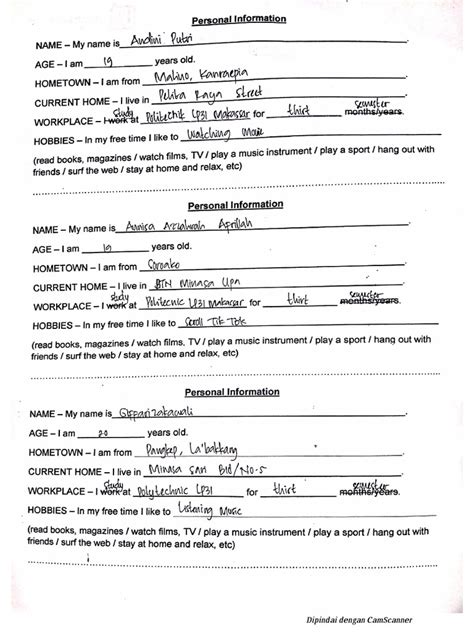 Personal Information
NAME – My name is Andini Putri
AGE – I am 19 years old.
HOMETOWN – I am from Malino, Kanreapia
CURRENT HOME – I live in Pelita Raya Street
WORKPLACE – I work study at Politechnik LP3I Makassar for thirt months/years. semester
HOBBIES – In my free time I like to Watching Movie
(read books, magazines / watch films, TV / play a music instrument / play a sport / hang out with
friends / surf the web / stay at home and relax, etc)
Personal Information
NAME – My name is Annisa Aprillah
AGE – I am 19 years old.
HOMETOWN – I am from Soroako
CURRENT HOME – I live in BTN Minasa Upa
WORKPLACE – I work study at Politecnic LP3I Makassar for thirt months/years. semester
HOBBIES – In my free time I like to Scroll Tik Tok
(read books, magazines / watch films, TV / play a music instrument / play a sport / hang out with
friends / surf the web / stay at home and relax, etc)
Personal Information
NAME – My name is
AGE – I am 20 years old.
HOMETOWN – I am from Pangkep, La'bakkang
CURRENT HOME – I live in Minasa Sari Bld/No-5
WORKPLACE – I work study at Polytechnic LP3I for thirt months/years. semester
HOBBIES – In my free time I like to Listening Music
(read books, magazines / watch films, TV / play a music instrument / play a sport / hang out with
friends / surf the web / stay at home and relax, etc)
Dipindai dengan CamScanner